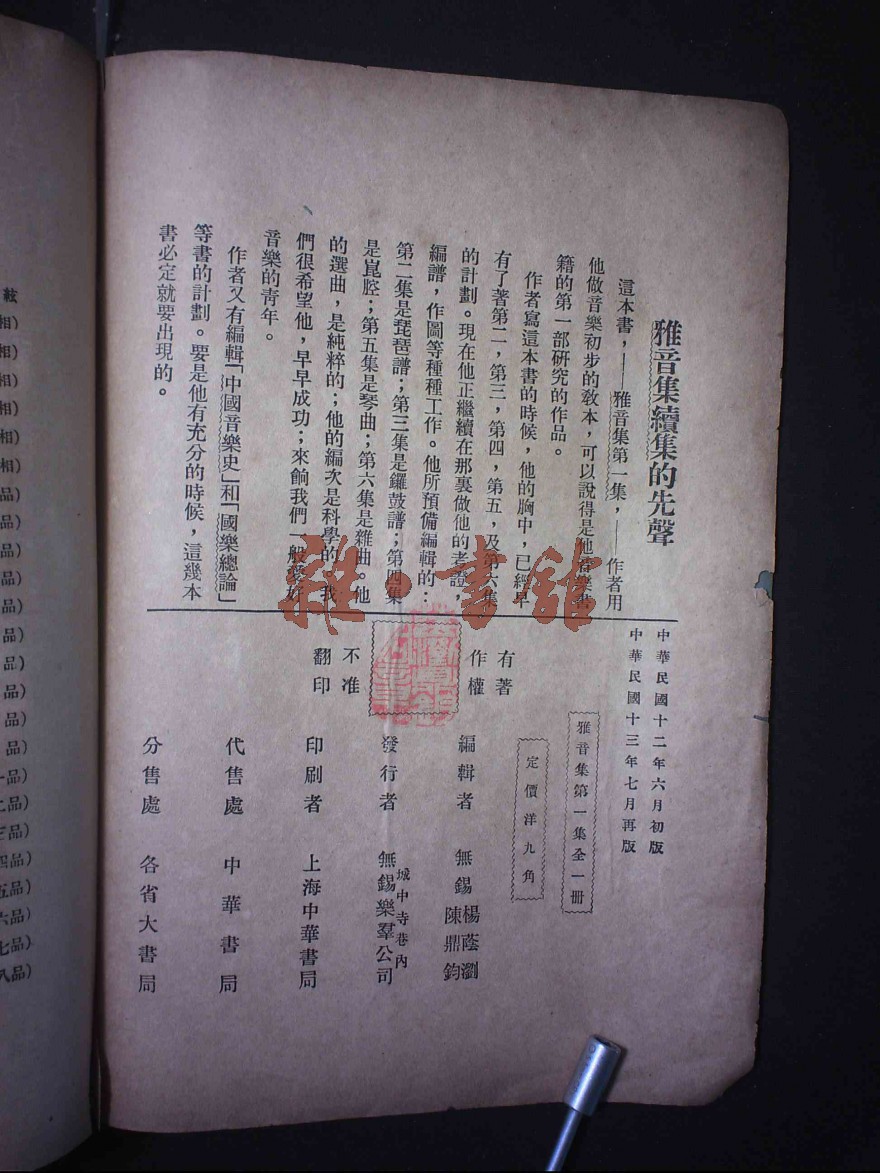 雅音集續集的先聲
這本書，——雅音集第一集，——作者用
他做音樂初步的敎本，可以說得是他音樂書
籍的第一部硏究的作品。
作者寫這本書的時候，他的胸中，已經早
有了著第二，第三，第四，第五，及第六集
的計劃。現在他正繼續在那裏做他的考證，
編譜，作圖等種種工作。他所預備編輯的：
第二集是琵琶譜；第三集是鑼鼓譜；第四集
是崑腔；第五集是琴曲；第六集是雜曲。他
的選曲，是純粹的；他的編次是科學的。我
們很希望他，早早成功；來餉我們一般愛好
音樂的靑年。
作者又有編輯「中國音樂史」和「國樂總論」
等書的計劃。要是他有充分的時候，這幾本
書必定就要出現的。
中華民國十二年六月初版
中華民國十三年七月再版
雅音集第一集全一冊
定價洋九角
有著
作權
不准
翻印
編輯者 無錫 楊蔭瀏
陳鼎鈞
發行者 城中寺巷內
無錫樂羣公司
印刷者 上海中華書局
代售處 中華書局
分售處 各省大書局
雜·書館
絃
相）
相）
相）
相）
相）
相）
品）
品）
品）
品）
品）
品）
品）
品）
品）
品）
品）
品）
品）
四品）
五品）
六品）
七品）
八品）